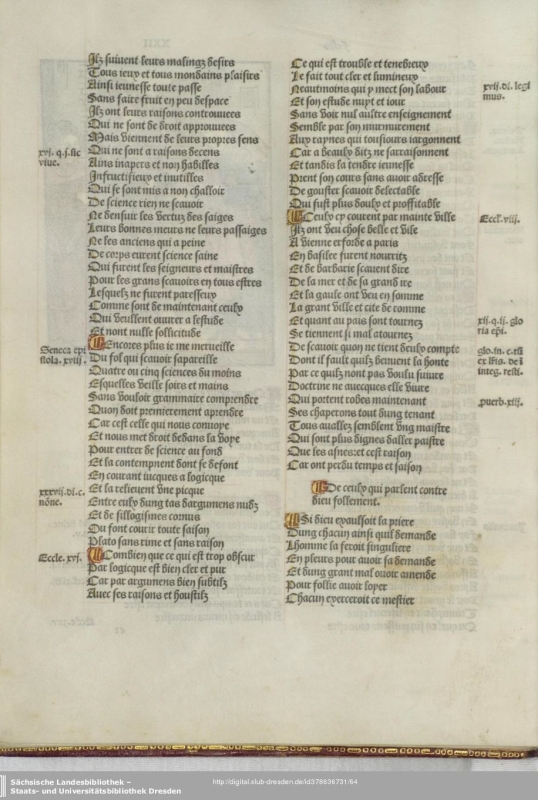 Ilz suivent leurs malingz desirs
Tous ieux et tous mondains plaisirs
Ainsi ieunesse toute passe
Sans faire fruit en peu despace
Ilz ont leurs raisons controuuees
Qui ne sont de droit approuuees
Mais viennent de leurs propres sens
xvi. q. i. sic
viue.
Qui ne sont a raisons decens
Ains inapers et non habilles
Infructifieux et inutilles
Qui se sont mis a non challoir
De science rien ne scauoir
Ne densuir les vertuz des saiges
Leurs bonnes meurs ne leurs passaiges
Ne les anciens qui a peine
De corps eurent science saine
Qui furent les seigneurs et maistres
Pour les grans scauoirs en tous estres
Lesquelz ne furent paresseux
Comme sont de maintenant ceulx
Qui veullent ouurer a lestude
Et nont nulle sollicitude
Seneca epi
stola. xviii.
Encores plus ie me merueille
Du fol qui scauoir sapareille
Quatre ou cinq sciences du moins
Esquelles veille soirs et mains
Sans vouloir grammaire comprendre
Quon doit premierement aprendre
Car cest celle qui nous conuoye
Et nous met droit dedans la voye
Pour entrer de science au fond
Et la contempnent dont se defont
En courant iucques a logicque
xxxvii. di. c.
nōne.
Et la relieuent vne picque
Entre eulx dung tas dargumens nudz
Et de sillogismes cornus
Ou font courir toute saison
Plato sans rime et sans raison
Eccle. xvi.
Combien que ce qui est trop obscur
Par logicque est bien cler et pur
Car par argumens bien subtilz
Auec ses raisons et houstilz
Ce qui est trouble et tenebreux
Le fait tout cler et lumineux
Neautmoins qui y mect son labour
xvii. di. legi
mus.
Et son estude nuyt et iour
Sans voir nul aultre enseignement
Semble par son murmurement
Aux raynes qui tousiours iargonnent
Car a beaulx ditz ne sarraisonnent
Et tandis la tendre ieunesse
Prent son cours sans auoir adresse
De gouster scauoir delectable
Qui fust plus doulx et proffitable
Ceulx cy courent par mainte ville
Eccle. viii.
Ilz ont veu chose belle et vile
A vienne erforde a paris
En basilee furent nourritz
Et de barbarie scauent dire
De la mer et de sa grand ire
Et la gaule ont veu en somme
La grant ville et cite de romme
Et quant au pais sont tournez
xii. q. ii. glo
ria epi.
Se tiennent si mal atournez
De scauoir quon ne tient deulx compte
Dont il fault quilz bennient la honte
Par ce quilz nont pas voulu suiure
Doctrine ne auecques elle viure
Qui portent robes maintenant
puerb. xiii.
Ses chaperons tout dung tenant
Tous auallez semblent vng maistre
Qui sont plus dignes daller paistre
Que les asnes: et cest raison
Car ont perdu temps et saison
De ceulx qui parlent contre
dieu follement.
Si dieu exaulsoit la priere
Dung chacun ainsi quil demande
Lhomme la feroit singuliere
En pleurs pour auoir sa demande
Et dung grant mal ouoir amende
Pour follie auoir loyer
Chacun exerceroit ce mestier
Sächsische Landesbibliothek –
Staats- und Universitätsbibliothek Dresden
http://digital.slub-dresden.de/id378636731/64